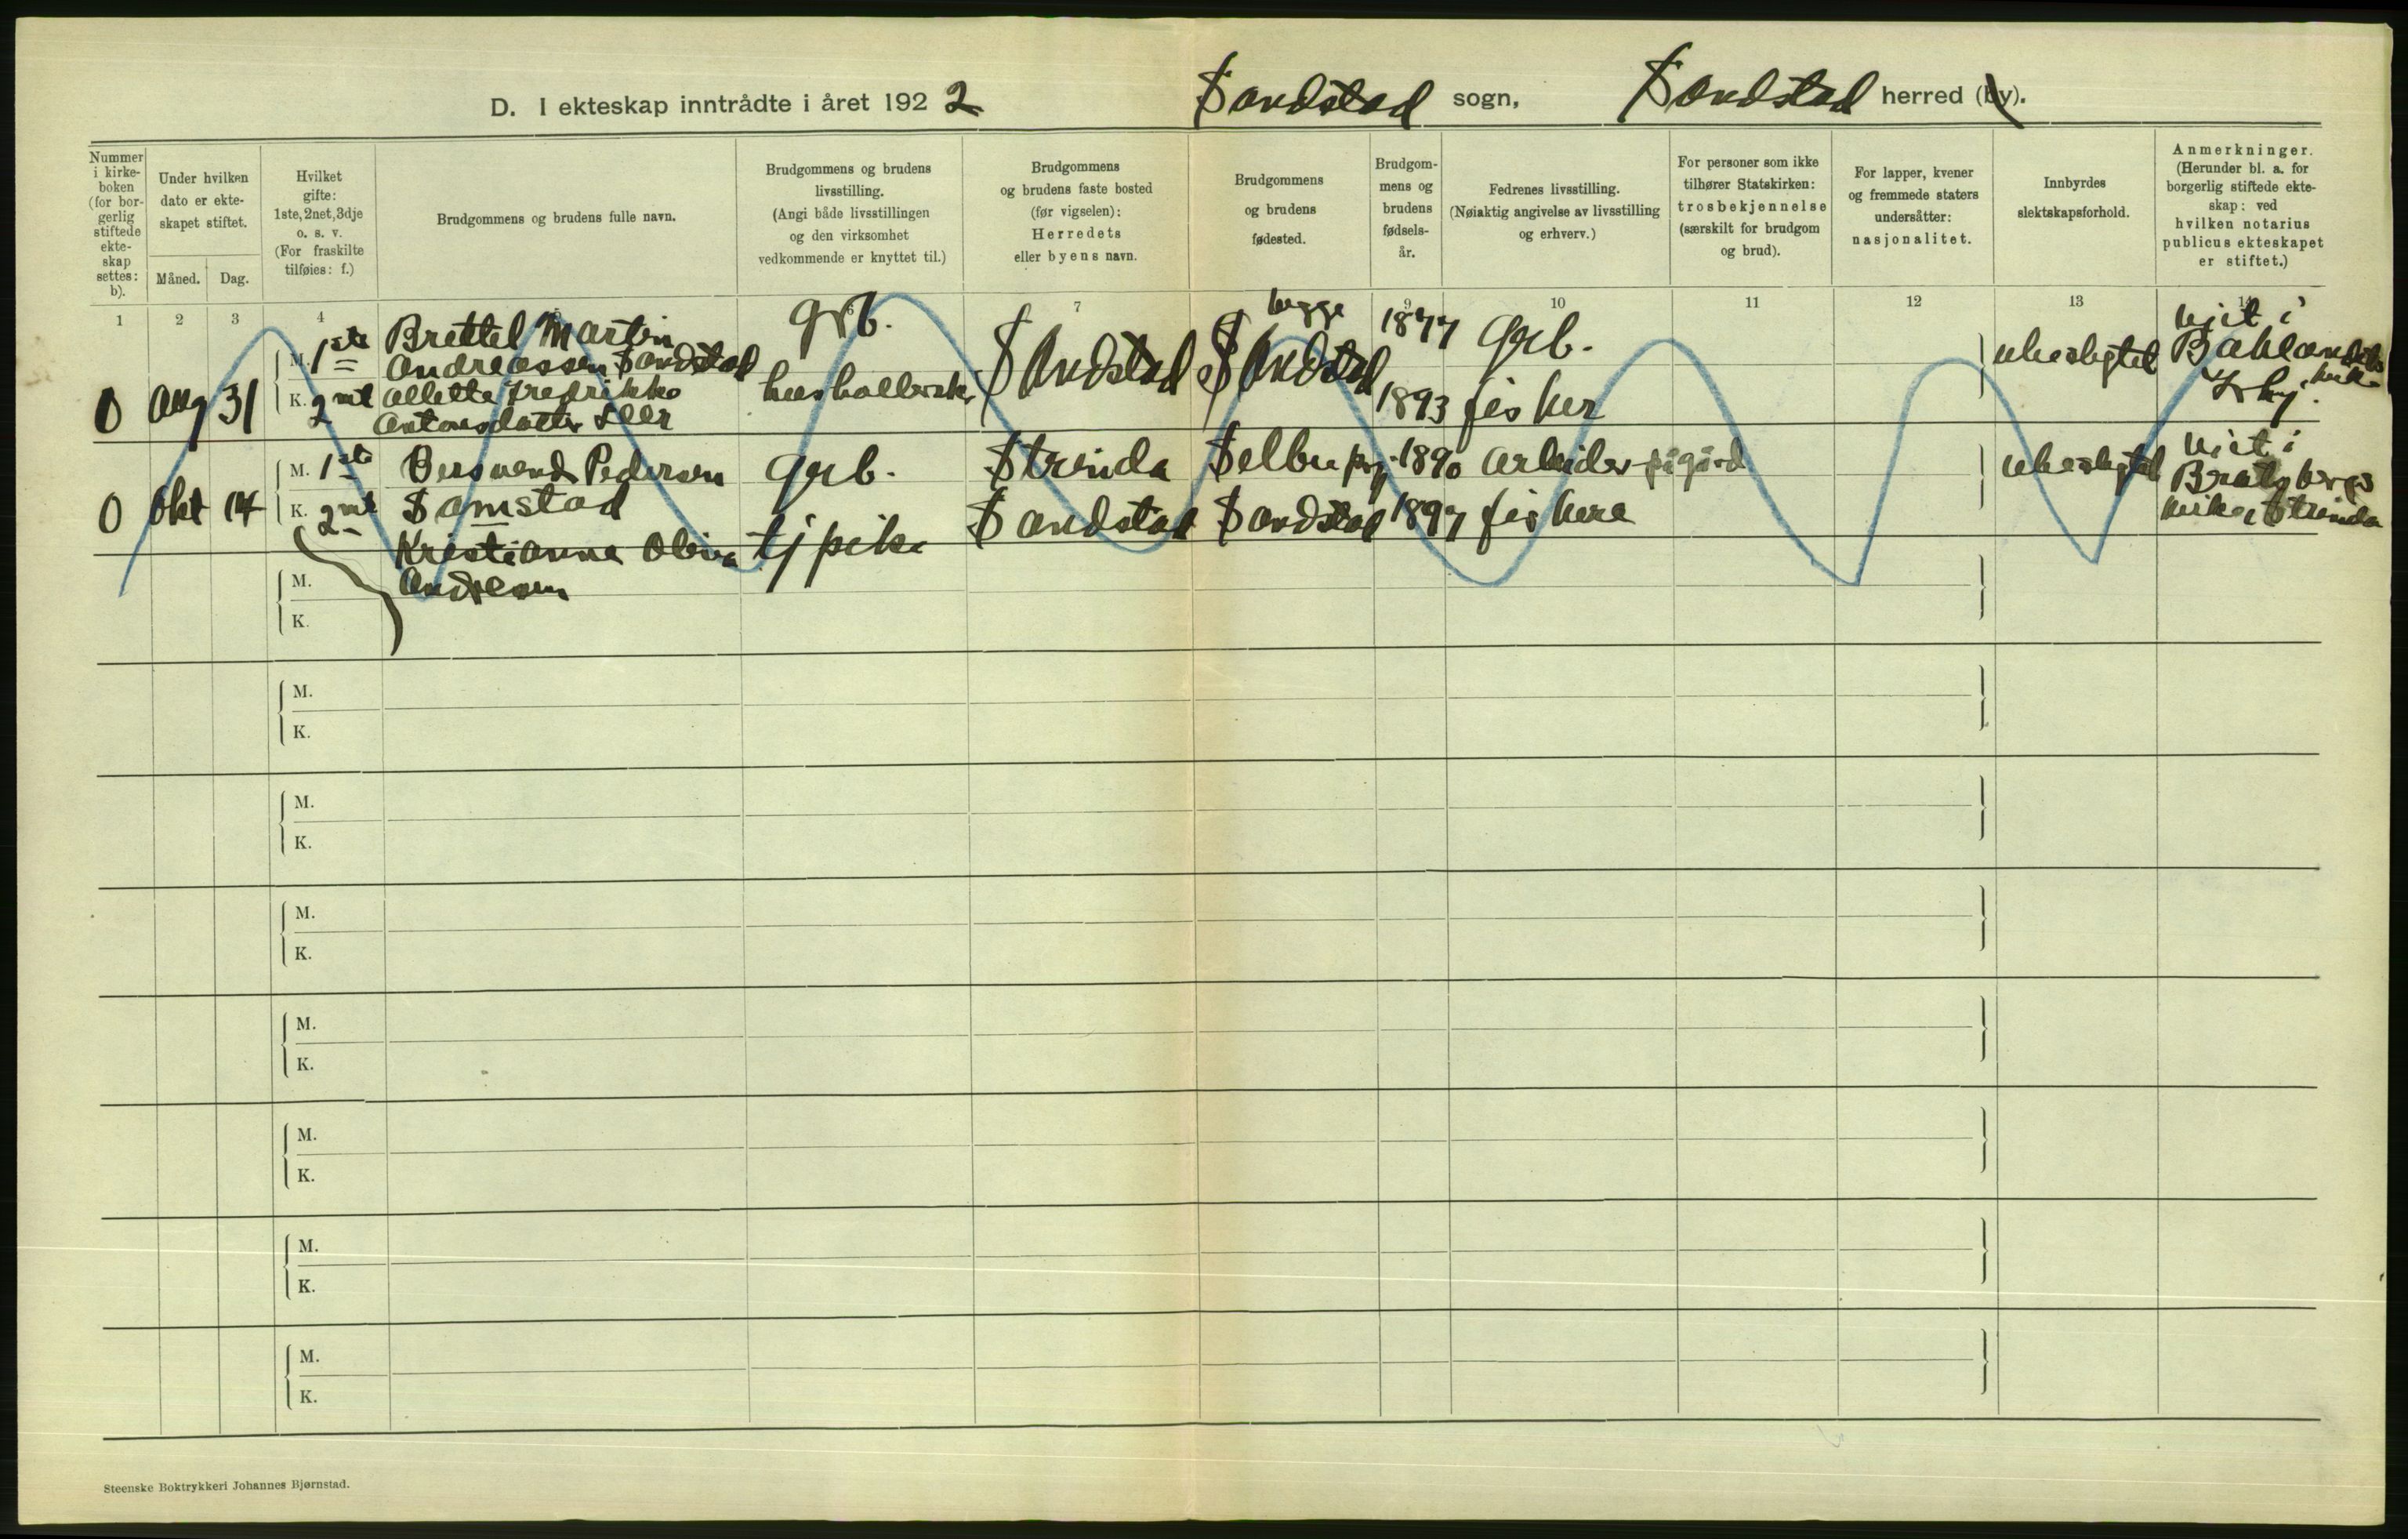 D. I ekteskap inntrådte i året 1922 Sandstad sogn, Sandstad herred (by).
Nummer
i kirke-
boken
(for bor-
gerlig
stiftede
ekte-
skap
settes:
b).
Under hvilken
dato er ekte-
skapet stiftet.
Måned. Dag.
Hvilket
gifte:
1ste, 2net, 3dje
o. s. v.
(For fraskilte
tilføies: f.)
Brudgommens og brudens fulle navn.
Brudgommens og brudens
livsstilling.
(Angi både livsstillingen
og den virksomhet
vedkommende er knyttet til.)
Brudgommens
og brudens faste bosted
(før vigselen):
Herredets
eller byens navn.
Brudgommens
og brudens
fødested.
Brudgom-
mens og
brudens
fødsels-
år.
Fedrenes livsstilling.
(Nøiaktig angivelse av livsstilling
og erhverv.)
For personer som ikke
tilhører Statskirken:
trosbekjennelse
(særskilt for brudgom
og brud).
For lapper, kvener
og fremmede staters
undersåtter:
nasjonalitet.
Innbyrdes
slektskapsforhold.
Anmerkninger.
(Herunder bl. a. for
borgerlig stiftede ekte-
skap: ved
hvilken notarius
publicus ekteskapet
er stiftet.)
1 2 3 4 5 6 7 8 9 10 11 12 13 14
0 Aug 31
M. 1ste
K. 2net
Brettel Martin
Andreassen Sandstad
Allette Fredrikke
Antonsdatter
grb.
Sandstad
begge
Sandstad
1877 grb.
1893 fisker
ubeslegtet
viet i
0 Okt 14
M. 1ste
K. 2net
Bersvend Pedersen
Samstad
Kristianna Oliva
Andresen
grb.
tjpike
Strinda
Sandstad
Selbu prj.
Sandstad
1890 arbeider på gård
1897 fiskere
ubeslegtet
viet i
Bratsbergs
kirke, Strinda
M.
K.
M.
K.
M.
K.
M.
K.
M.
K.
M.
K.
M.
K.
M.
K.
Steenske Boktrykkeri Johannes Bjørnstad.